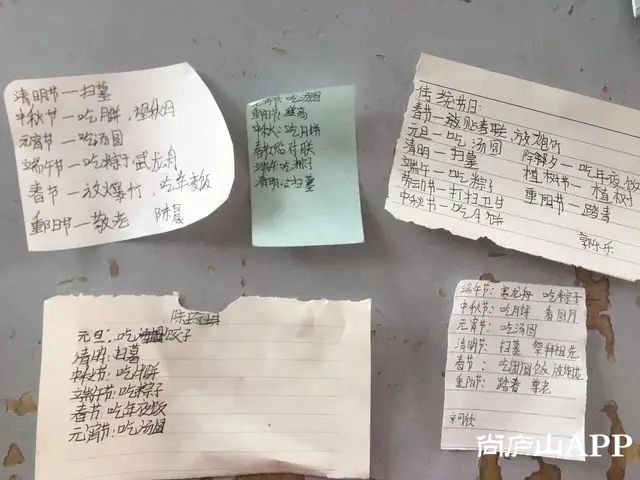 清明节—扫墓
中秋节—吃月饼,望秋月
元宵节—吃汤圆
端午节—吃粽子 武龙舟
春节—放爆竹,吃年夜饭
重阳节—敬老 陈晨
元宵节:吃汤圆
重阳节:登高
中秋:吃月饼
春节贴对联
端午吃粽子
清明:扫墓
传统节日:
春节—放贴春联 放爆竹
元旦—吃汤圆 除夕—吃年夜饭
清明—扫墓 植树节—植树
端午—吃粽子 重阳节—踏青
劳动节—打扫卫生
中秋节—吃月饼
郭乐乐
元旦:吃汤圆饺子
清明:扫墓
中秋节:吃月饼
端午节:吃粽子
春节:吃年夜饭
元宵节:吃汤圆
端午节:赛龙舟 吃粽子
中秋节:吃月饼 看圆月
元宵节:吃汤圆
清明节:扫墓 祭拜祖先
春节:吃团圆饭 放烟花
重阳节:踏青 尊老
宋可欣
尚庐山APP